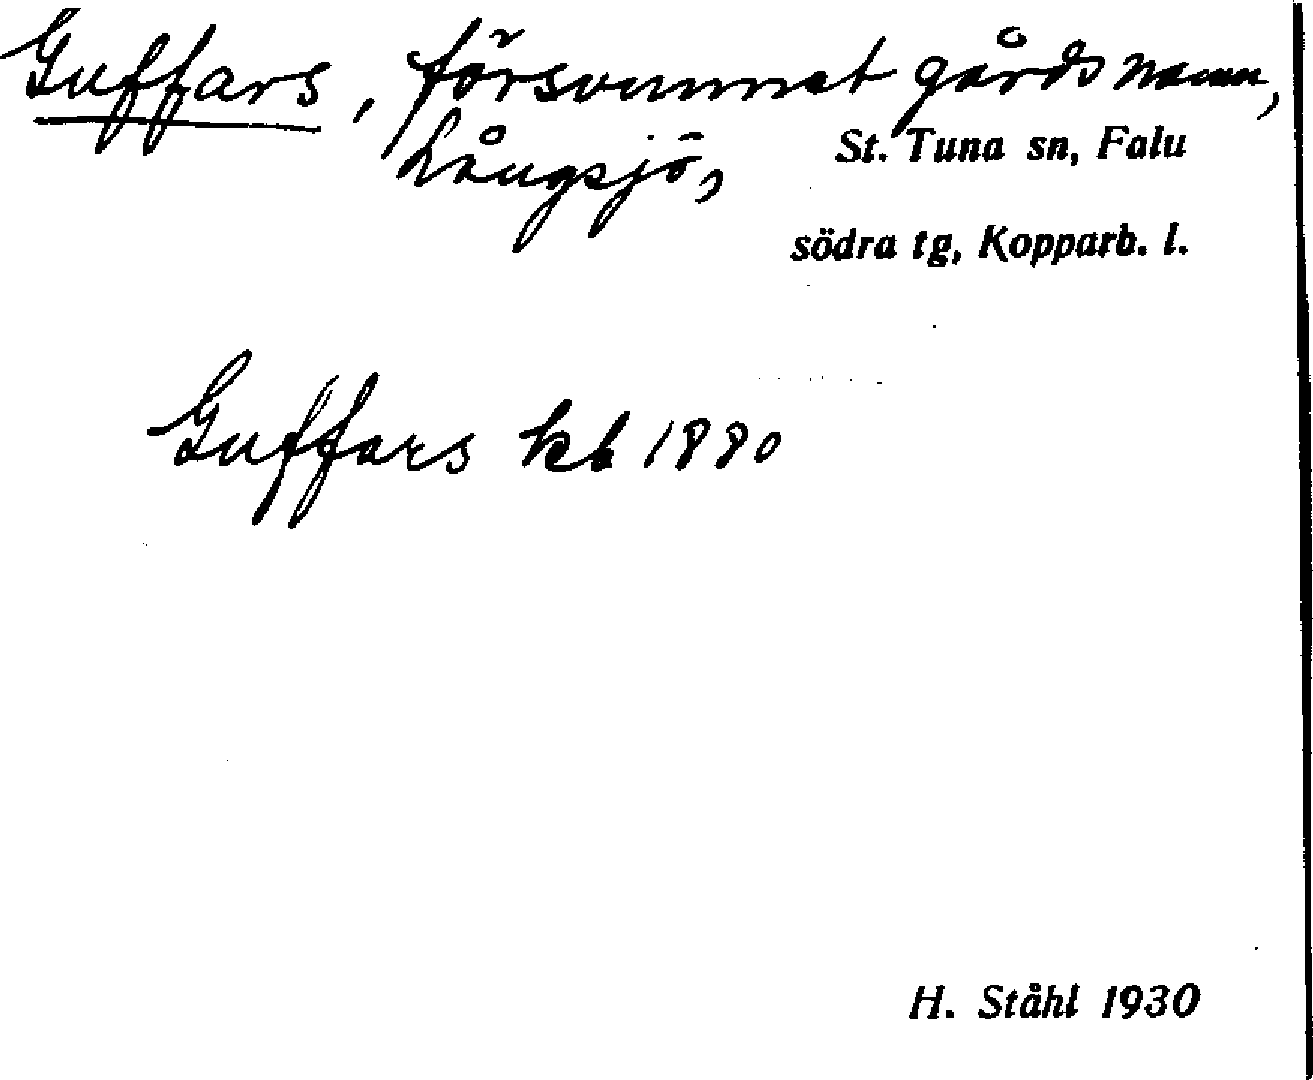 Guffars, försvunnet gårdsnamn,
Långsjö, St. Tuna sn, Falu
södra tg, Kopparb. l.
Guffars kb 1880
H. Ståhl 1930